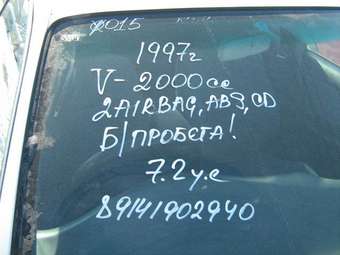 2015
1997г
V-2000cc
2AIRBAG, ABS, CD
Б/ПРОБЕГА!
7.2 у.е
89141902940